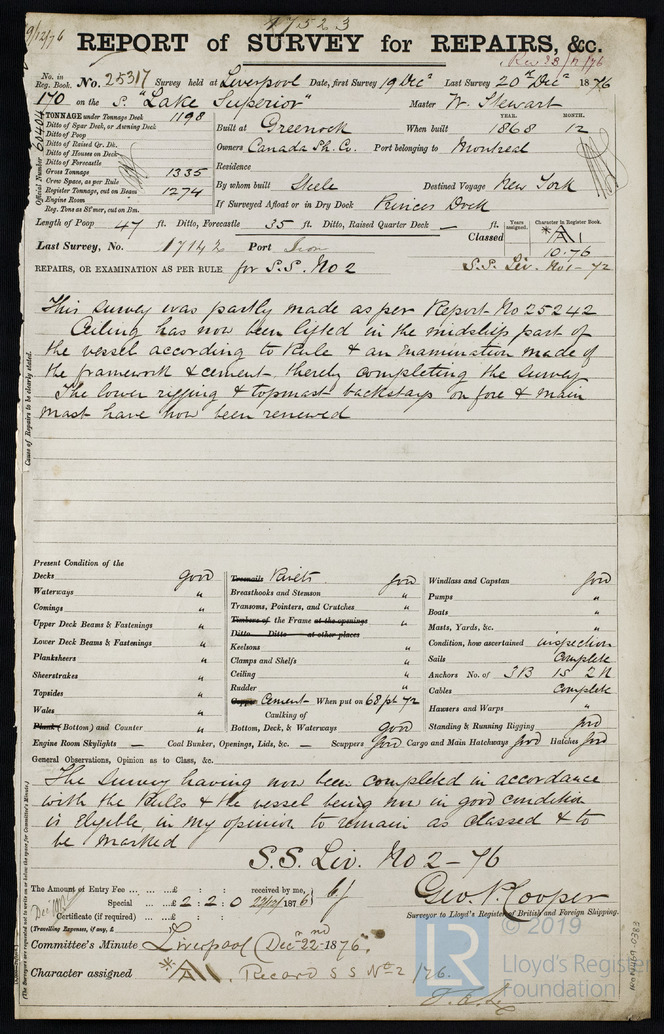 9/12/76
47523
REPORT of SURVEY for REPAIRS, &c.
Rec 23/12/76
No. in Reg. Book. No. 25317 Survey held at Liverpool Date, first Survey 19 Decr Last Survey 20th Decr 1876
170 on the S. "Lake Superior" Master W. Stewart
TONNAGE under Tonnage Deck 1198
Ditto of Spar Deck, or Awning Deck
Ditto of Poop
Ditto of Raised Qr. Dk.
Ditto of Houses on Deck
Ditto of Forecastle
Gross Tonnage 1335
Crew Space, as per Rule
Register Tonnage, cut on Beam 1274
Engine Room
Reg. Tons as St'mer, cut on Bm.
Official Number 60404
Built at Greenock When built YEAR. 1868 MONTH. 12
Owners Canada Sh. Co. Port belonging to Montreal
Residence
By whom built Steele Destined Voyage New York
If Surveyed Afloat or in Dry Dock Princes Dock
Length of Poop 47 ft. Ditto, Forecastle 35 ft. Ditto, Raised Quarter Deck — ft.
Last Survey, No. 17142 Port Iron
Classed Years assigned. Character in Register Book.
A 1
10.76
S.S. Liv. No 1-72
REPAIRS, OR EXAMINATION AS PER RULE for S.S. No 2
This survey was partly made as per Report No 25242
Ceiling has now been lifted in the midship part of
the vessel according to Rule & an Examination made of
the framework & cement thereby completing the survey
The lower rigging & topmast backstays on fore & main
mast have now been renewed
Cause of Repairs to be clearly stated.
Present Condition of the
Decks good
Waterways "
Comings "
Upper Deck Beams & Fastenings "
Lower Deck Beams & Fastenings "
Planksheers "
Sheerstrakes "
Topsides "
Wales "
Plank (Bottom) and Counter "
Treenails Rivets good
Breasthooks and Stemson "
Transoms, Pointers, and Crutches "
Timbers of the Frame at the openings "
Ditto Ditto at other places
Keelsons "
Clamps and Shelfs "
Ceiling "
Rudder "
Copper Cement When put on 68 pt 72
Caulking of
Bottom, Deck, & Waterways good
Windlass and Capstan good
Pumps "
Boats "
Masts, Yards, &c. "
Condition, how ascertained inspection
Sails Complete
Anchors No. of 3B 1S 2K
Cables Complete
Hawsers and Warps "
Standing & Running Rigging good
Engine Room Skylights — Coal Bunker, Openings, Lids, &c. — Scuppers good Cargo and Main Hatchways good Hatches good
General Observations, Opinion as to Class, &c.
The survey having now been completed in accordance
with the Rules & the vessel being now in good condition
is Eligible in my opinion to remain as classed & to
be marked
S.S. Liv. No 2-76
The Amount of Entry Fee £ : : received by me,
Special £ 2 : 2 : 0 22/12/1876
Certificate (if required) £ : :
(Travelling Expenses, if any, £
Geo. R. Cooper
Surveyor to Lloyd's Register of British and Foreign Shipping.
Committee's Minute Liverpool Decr 22nd 1876
Character assigned A 1. Record S S No 2/76.
© 2019
LR Lloyd's Register
Foundation